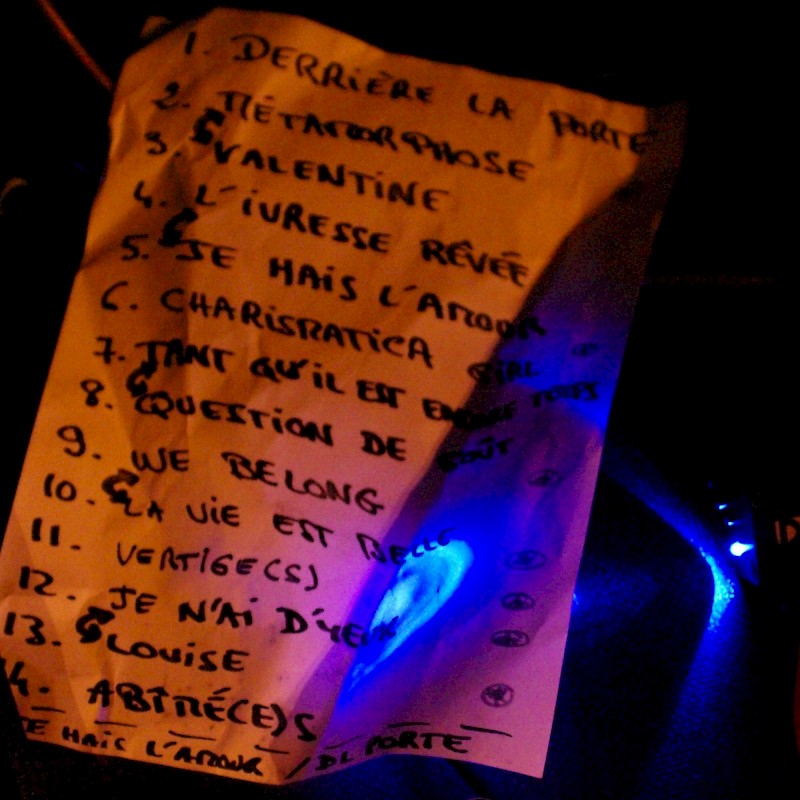 1. DERRIÈRE LA PORTE
2. MÉTAMORPHOSE
3. VALENTINE
4. L'IVRESSE RÊVÉE
5. JE HAIS L'AMOUR
6. CHARISMATICA GIRL
7. TANT QU'IL EST ENCORE TEMPS
8. QUESTION DE GOÛT
9. WE BELONG
10. LA VIE EST BELLE
11. VERTIGE(S)
12. JE N'AI D'YEUX
13. LOUISE
14. ABÎMÉ(E)S
JE HAIS L'AMOUR / DL PORTE